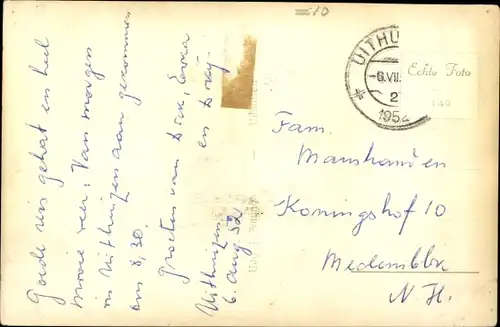 =10
Goede reis gehad en heel
mooie weer. Van morgen
in Uithuizen aan gekomen
om 8,30.
Groeten van Dick,
en
Uithuizen
6. Aug 52
UITHU
-6.VII
2
1952
Echte Foto
Fam.
Manshanden
Koningshof 10
Medemblik
N.H.